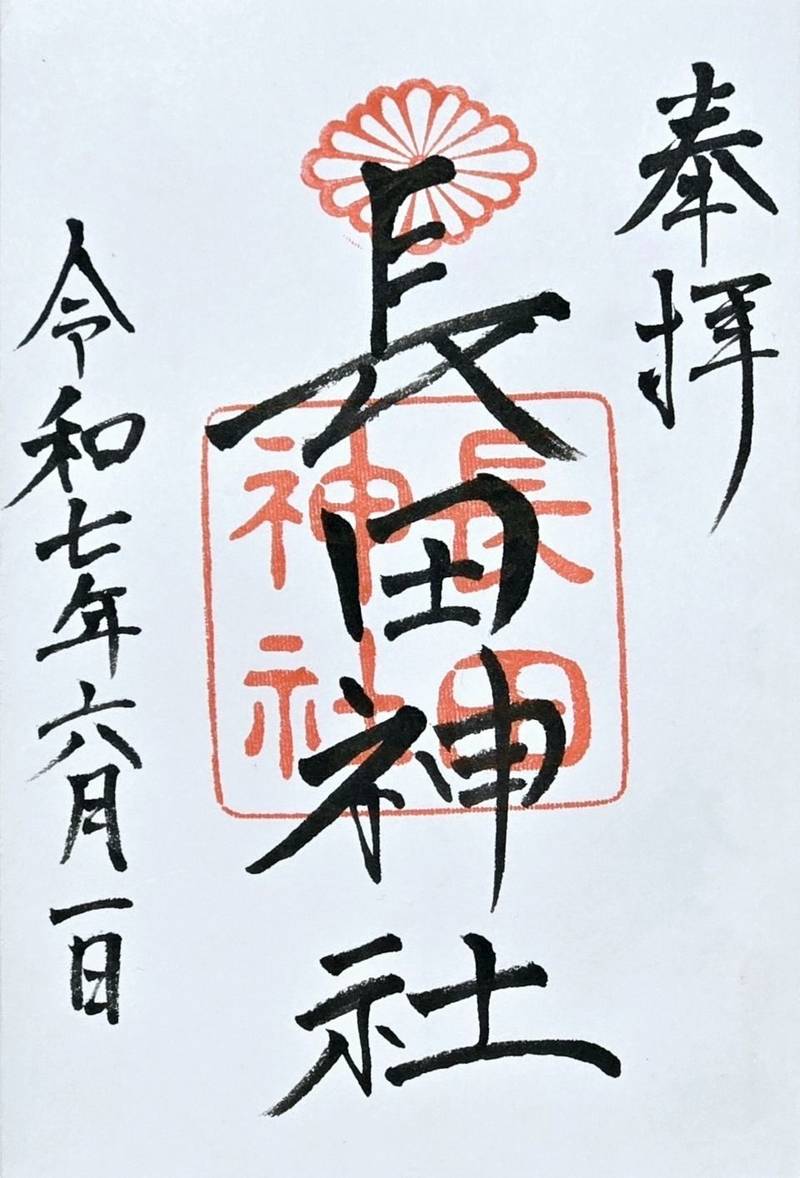 奉拝
長田神社
長田
神社
令和七年六月一日